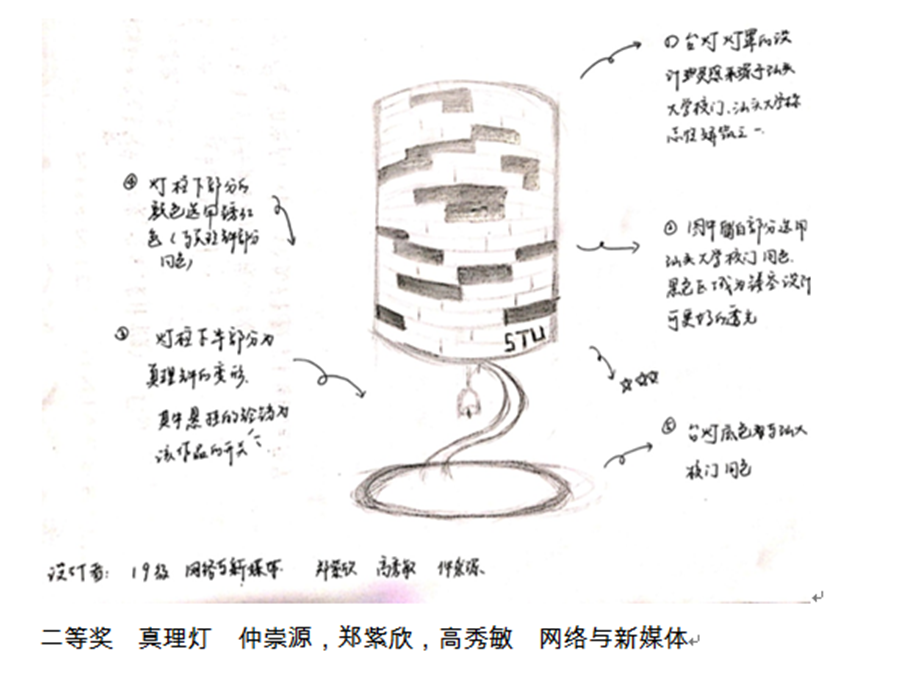 ① 台灯灯罩的设
计灵感来源于汕头
大学校门、汕头大学标
志性建筑之一.
④ 灯柱下部分的
颜色选用锈红
色(与真理钟部分
同色)
② 其中留白部分选用
汕头大学校门同色.
黑色区域为镂空设计
可更好的透光
STU
③ 灯柱下半部分为
真理钟的变形.
其中悬挂的铃铛为
该作品的开关
☆☆☆
⑤ 台灯底色都与汕大
校门同色
设计者: 19级 网络与新媒体 郑紫欣 高秀敏 仲崇源.
二等奖 真理灯 仲崇源，郑紫欣，高秀敏 网络与新媒体